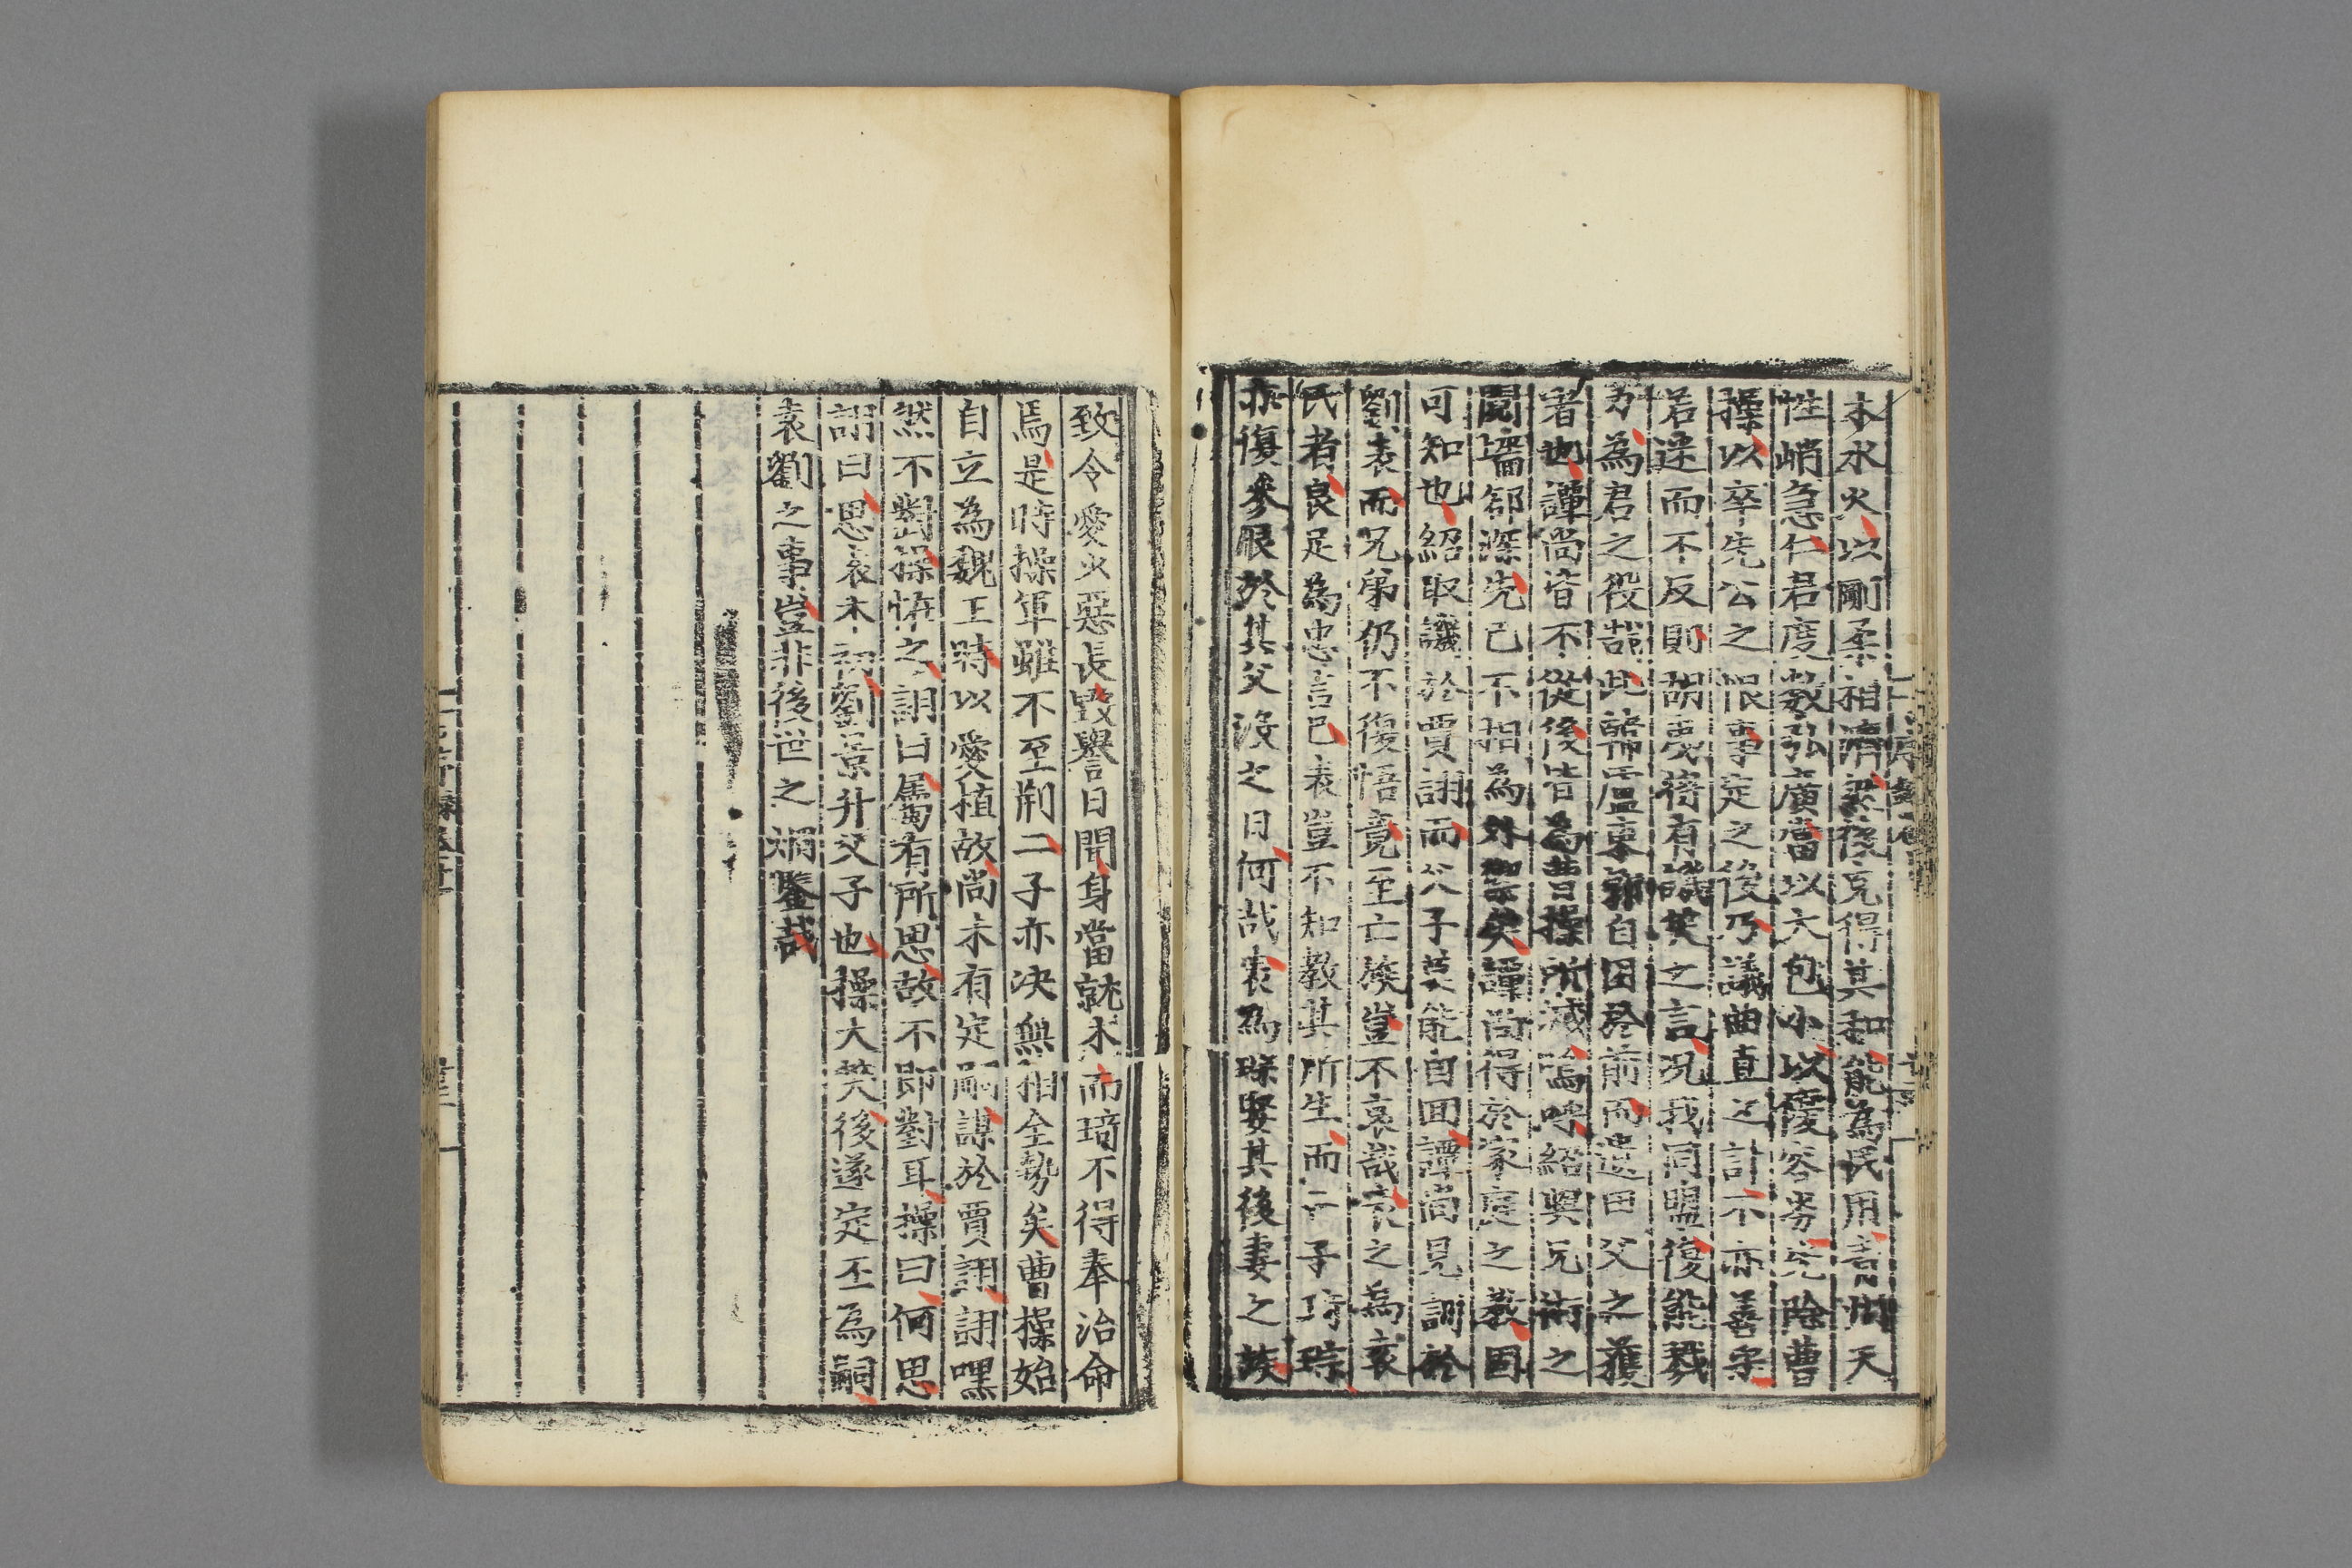 木水火以剛柔相濟然後克得其和能為民用青州天
性峭急仁君度數弘廣當以大包小以優容劣先除曹
操以卒先公之恨事定之後乃議曲直之計不亦善乎
若迷而不反則胡夷將有譏笑之言況我同盟復能戮
力為君之役哉此韓盧東郭自困於前而遺田父之獲
者也譚尚皆不從後皆為曹操所滅嗚呼紹與兄術之
鬩墻郤深先已不相為外禦矣譚尚得於家庭之教固
可知也紹取譏於賈詡而父子莫能自回譚尚見訓於
劉表而兄弟仍不復悟竟至亡族豈不哀哉表之為袁
氏者良足為忠言已表豈不知教其所生而二子琦琮
疾復參辰於其父沒之日何哉表為琮娶其後妻之族
致令愛少惡長毀譽日聞身當就木而琦不得奉治命
焉是時操軍雖不至荊二子亦決無相全勢矣曹操始
自立為魏王時以愛植故尚未有定嗣謀於賈詡詡嘿
然不對操怪之詡曰屬有所思故不即對耳操曰何思
詡曰思袁本初劉景升父子也操大笑後遂定丕為嗣
袁劉之事豈非後世之烱鑒哉